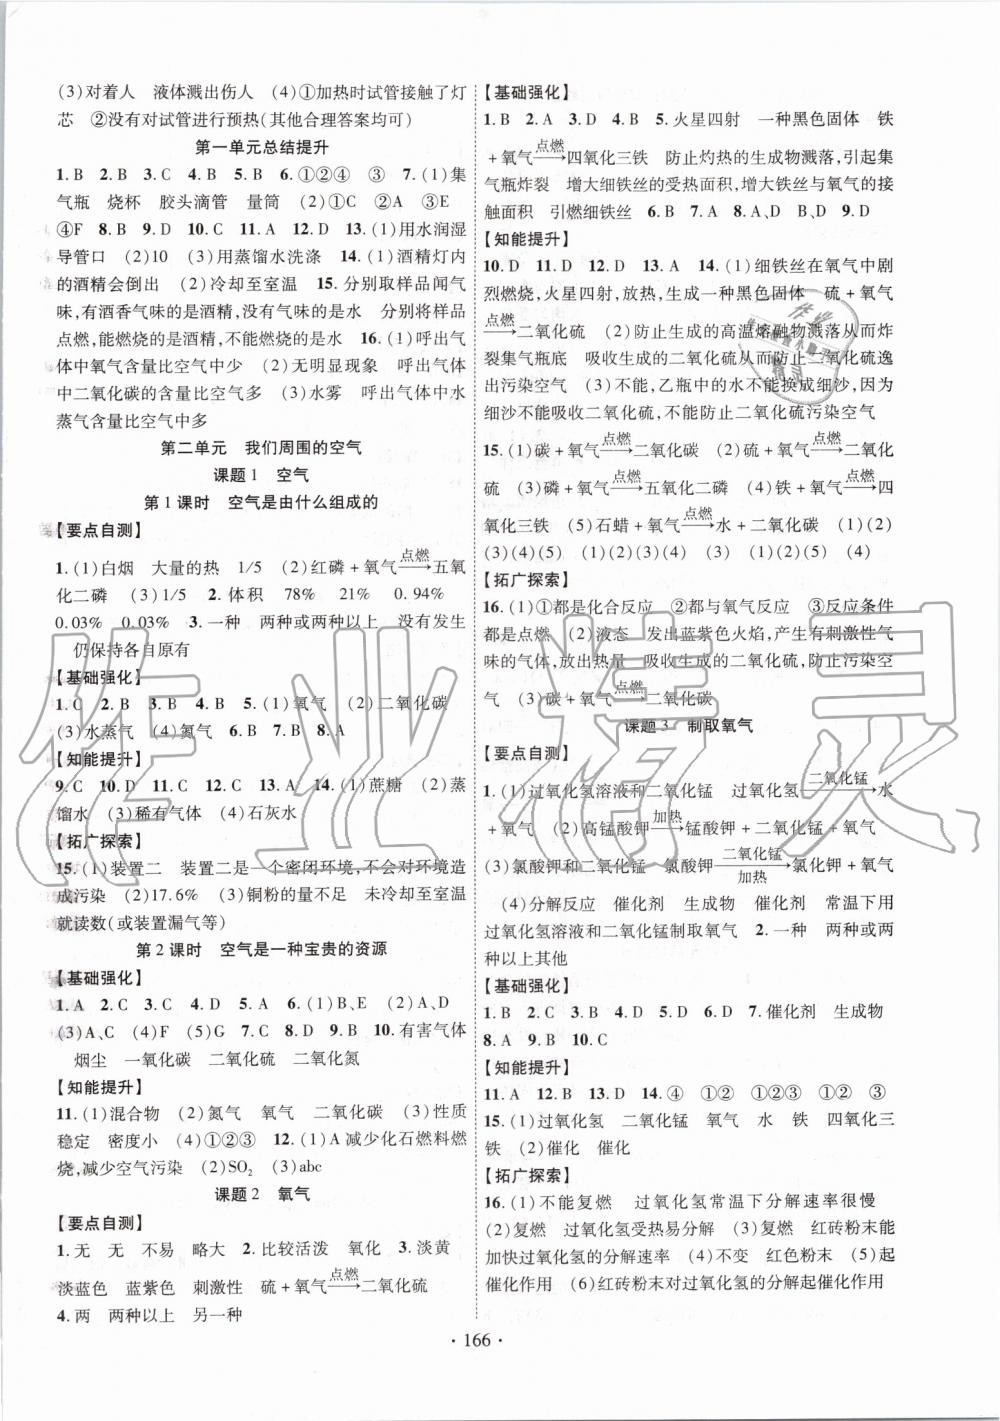 (3)对着人　液体溅出伤人　(4)①加热时试管接触了灯
芯　②没有对试管进行预热(其他合理答案均可)
第一单元总结提升
1.B　2.B　3.C　4.B　5.B　6.①②④　③　7.(1)集
气瓶　烧杯　胶头滴管　量筒　(2)①C　②A　③E
④F　8.B　9.D　10.C　11.A　12.D　13.(1)用水润湿
导管口　(2)10　(3)用蒸馏水洗涤　14.(1)酒精灯内
的酒精会倒出　(2)冷却至室温　15.分别取样品闻气
味,有酒香气味的是酒精,没有气味的是水　分别将样品
点燃,能燃烧的是酒精,不能燃烧的是水　16.(1)呼出气
体中氧气含量比空气中少　(2)无明显现象　呼出气体
中二氧化碳的含量比空气多　(3)水雾　呼出气体中水
蒸气含量比空气中多
第二单元　我们周围的空气
课题1　空气
第1课时　空气是由什么组成的
【要点自测】
1.(1)白烟　大量的热　1/5　(2)红磷+氧气—点燃→五氧
化二磷　(3)1/5　2.体积　78%　21%　0.94%
0.03%　0.03%　3.一种　两种或两种以上　没有发生
仍保持各自原有
【基础强化】
1.C　2.B　3.B　4.B　5.(1)氧气　(2)二氧化碳
(3)水蒸气　(4)氮气　6.B　7.B　8.B
【知能提升】
9.C　10.D　11.C　12.C　13.A　14.(1)蔗糖　(2)蒸
馏水　(3)稀有气体　(4)石灰水
【拓广探索】
15.(1)装置二　装置二是一个密闭环境,不会对环境造
成污染　(2)17.6%　(3)铜粉的量不足　未冷却至室温
就读数(或装置漏气等)
第2课时　空气是一种宝贵的资源
【基础强化】
1.A　2.C　3.C　4.D　5.A　6.(1)B、E　(2)A、D
(3)A、C　(4)F　(5)G　7.C　8.D　9.B　10.有害气体
烟尘　一氧化碳　二氧化硫　二氧化氮
【知能提升】
11.(1)混合物　(2)氮气　氧气　二氧化碳　(3)性质
稳定　密度小　(4)①②③　12.(1)A 减少化石燃料燃
烧,减少空气污染　(2)SO₂　(3)abc
课题2　氧气
【要点自测】
1.无　无　不易　略大　2.比较活泼　氧化　3.淡黄
淡蓝色　蓝紫色　刺激性　硫+氧气—点燃→二氧化硫
4.两　两种以上　另一种
【基础强化】
1.B　2.A　3.D　4.B　5.火星四射　一种黑色固体　铁
+氧气—点燃→四氧化三铁　防止灼热的生成物溅落,引起集
气瓶炸裂　增大细铁丝的受热面积,增大铁丝与氧气的接
触面积　引燃细铁丝　6.B　7.A　8.A、D　B、D　9.D
【知能提升】
10.D　11.D　12.B　13.A　14.(1)细铁丝在氧气中剧
烈燃烧,火星四射,放热,生成一种黑色固体　硫+氧气
—点燃→二氧化硫　(2)防止生成的高温熔融物溅落从而炸
裂集气瓶底　吸收生成的二氧化硫从而防止二氧化硫逸
出污染空气　(3)不能,乙瓶中的水不能换成细沙,因为
细沙不能吸收二氧化硫,不能防止二氧化硫污染空气
15.(1)碳+氧气—点燃→二氧化碳　(2)硫+氧气—点燃→二氧化
硫　(3)磷+氧气—点燃→五氧化二磷　(4)铁+氧气—点燃→四
氧化三铁　(5)石蜡+氧气—点燃→水+二氧化碳　(1)(2)
(3)(4)(5)　(1)(2)(3)(4)　(3)　(5)　(2)　(4)
【拓广探索】
16.(1)①都是化合反应　②都与氧气反应　③反应条件
都是点燃　(2)液态　发出蓝紫色火焰,产生有刺激性气
味的气体,放出热量　吸收生成的二氧化硫,防止污染空
气　(3)碳+氧气—点燃→二氧化碳
课题3　制取氧气
【要点自测】
1.(1)过氧化氢溶液和二氧化锰　过氧化氢—二氧化锰→水
+氧气　(2)高锰酸钾—加热→锰酸钾+二氧化锰+氧气
(3)氯酸钾和二氧化锰　氯酸钾—二氧化锰/加热→氯化钾+氧气
(4)分解反应　催化剂　生成物　催化剂　常温下用
过氧化氢溶液和二氧化锰制取氧气　2.一种　两种或两
种以上其他
【基础强化】
1.B　2.C　3.B　4.C　5.D　6.D　7.催化剂　生成物
8.A　9.B　10.C
【知能提升】
11.A　12.B　13.D　14.④　①②　①②③　①②　③
15.(1)过氧化氢　二氧化锰　氧气　水　铁　四氧化三
铁　(2)催化　催化
【拓广探索】
16.(1)不能复燃　过氧化氢常温下分解速率很慢
(2)复燃　过氧化氢受热易分解　(3)复燃　红砖粉末能
加快过氧化氢的分解速率　(4)不变　红色粉末　(5)起
催化作用　(6)红砖粉末对过氧化氢的分解起催化作用
·166·
作业精灵